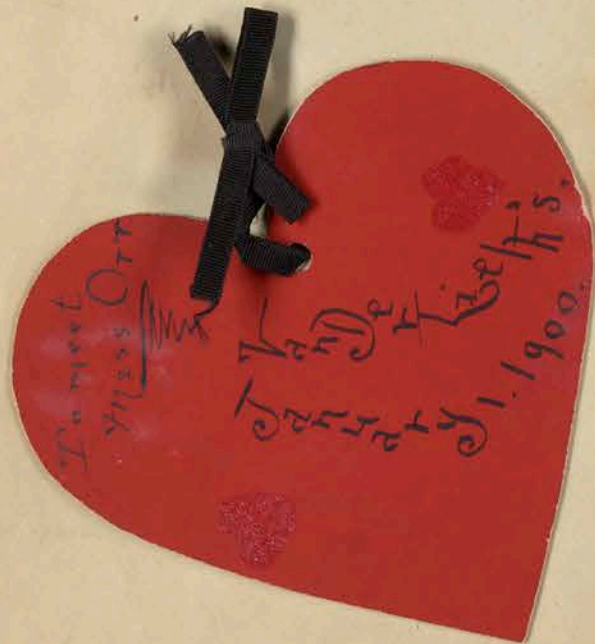 To meet
Miss Orr
VanDer Lieth's.
January 1.1900.